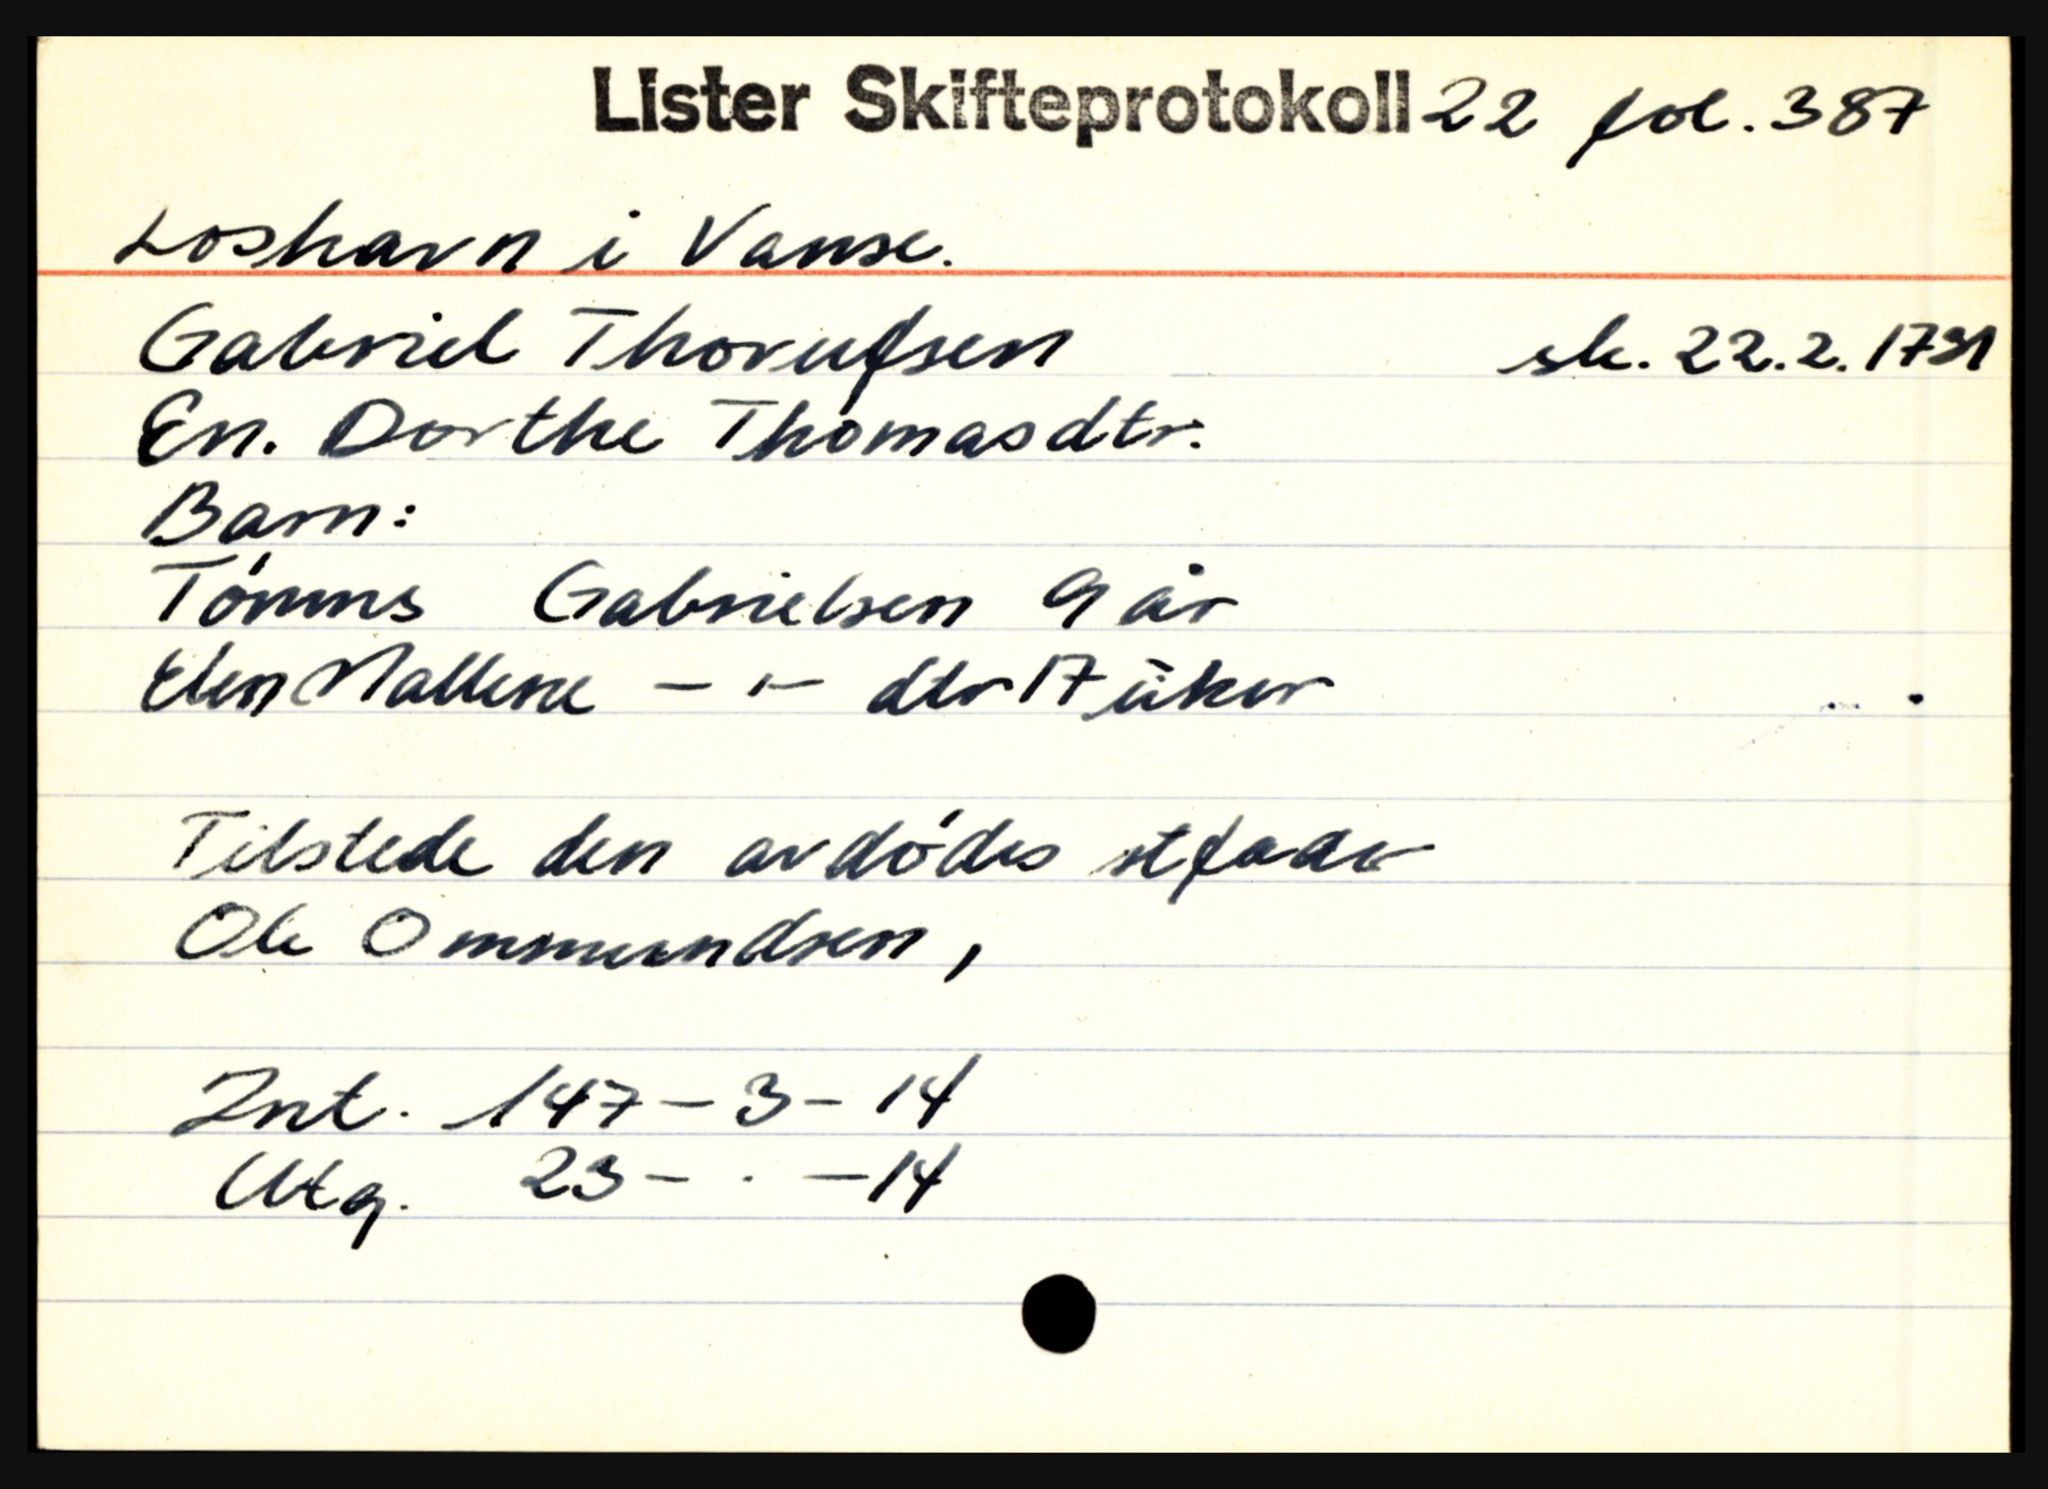 Lister Skifteprotokoll 22 fol. 387
Loshavn i Vanse.
Gabriel Thorufsen sk. 22.2. 1791
En. Dorthe Thomasdtr.
Barn:
Tönnes Gabrielsen 9 år
Elen Mallene - " - dtr 17 uker
Tilstede den avdødes stfader
Ole Ommundsen,
Int. 147 - 3 - 14
Utg. 23 - . - 14